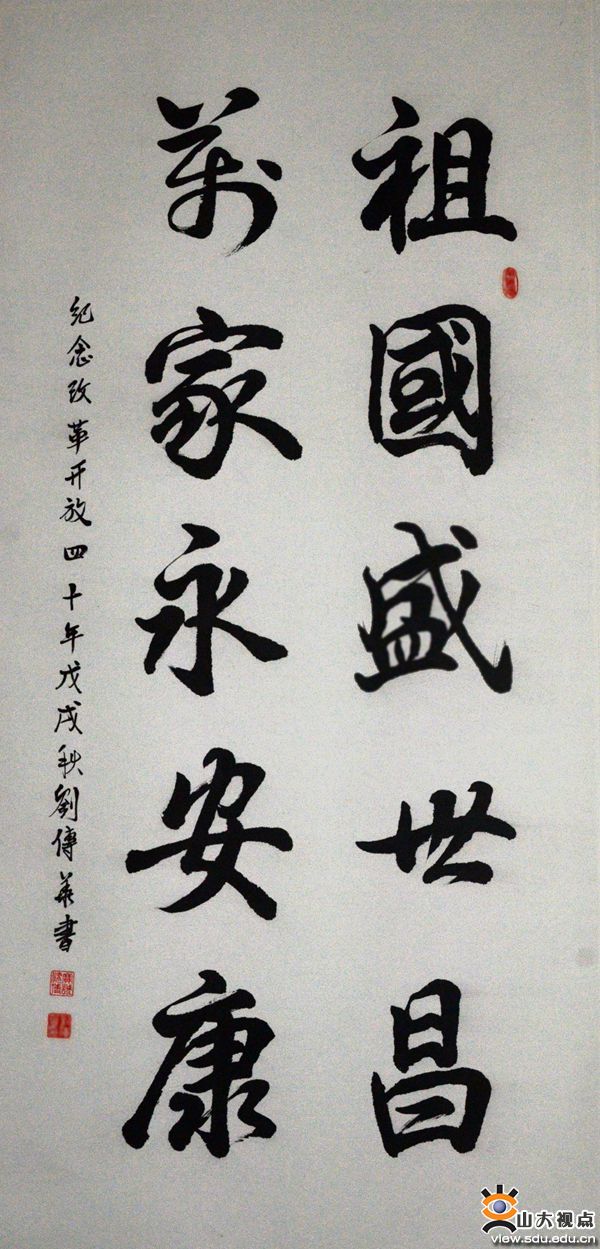 祖國盛世昌
萬家永安康
纪念改革开放四十年戊戌秋劉傳美書
山大视点
view.sdu.edu.cn